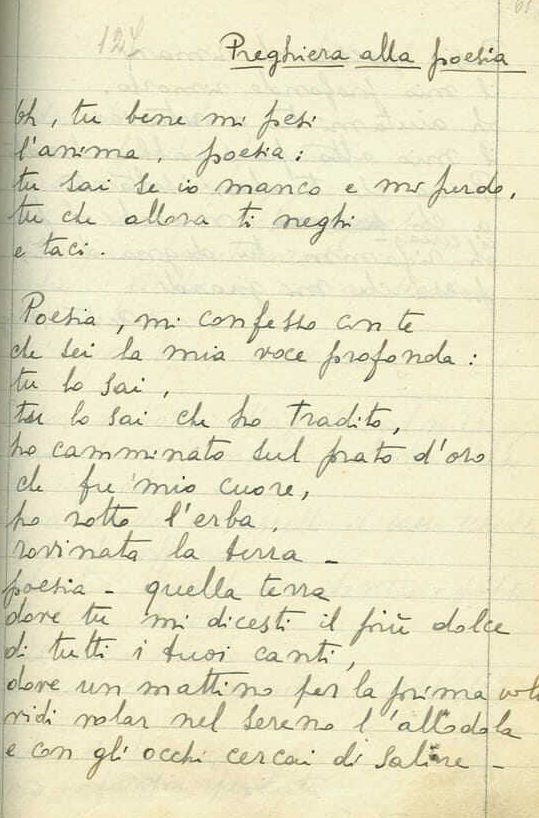 127
Preghiera alla poesia
Oh, tu bene mi pesi
l'anima, poesia:
tu sai se io manco e mi perdo,
tu che allora ti neghi
e taci.
Poesia, mi confesso con te
che sei la mia voce profonda:
tu lo sai,
tu lo sai che ho tradito,
ho camminato sul prato d'oro
che fu mio cuore,
ho rotto l'erba,
rovinata la terra –
poesia – quella terra
dove tu mi dicesti il più dolce
di tutti i tuoi canti,
dove un mattino per la prima volt
vidi volar nel sereno l'allodola
e con gli occhi cercai di salire –